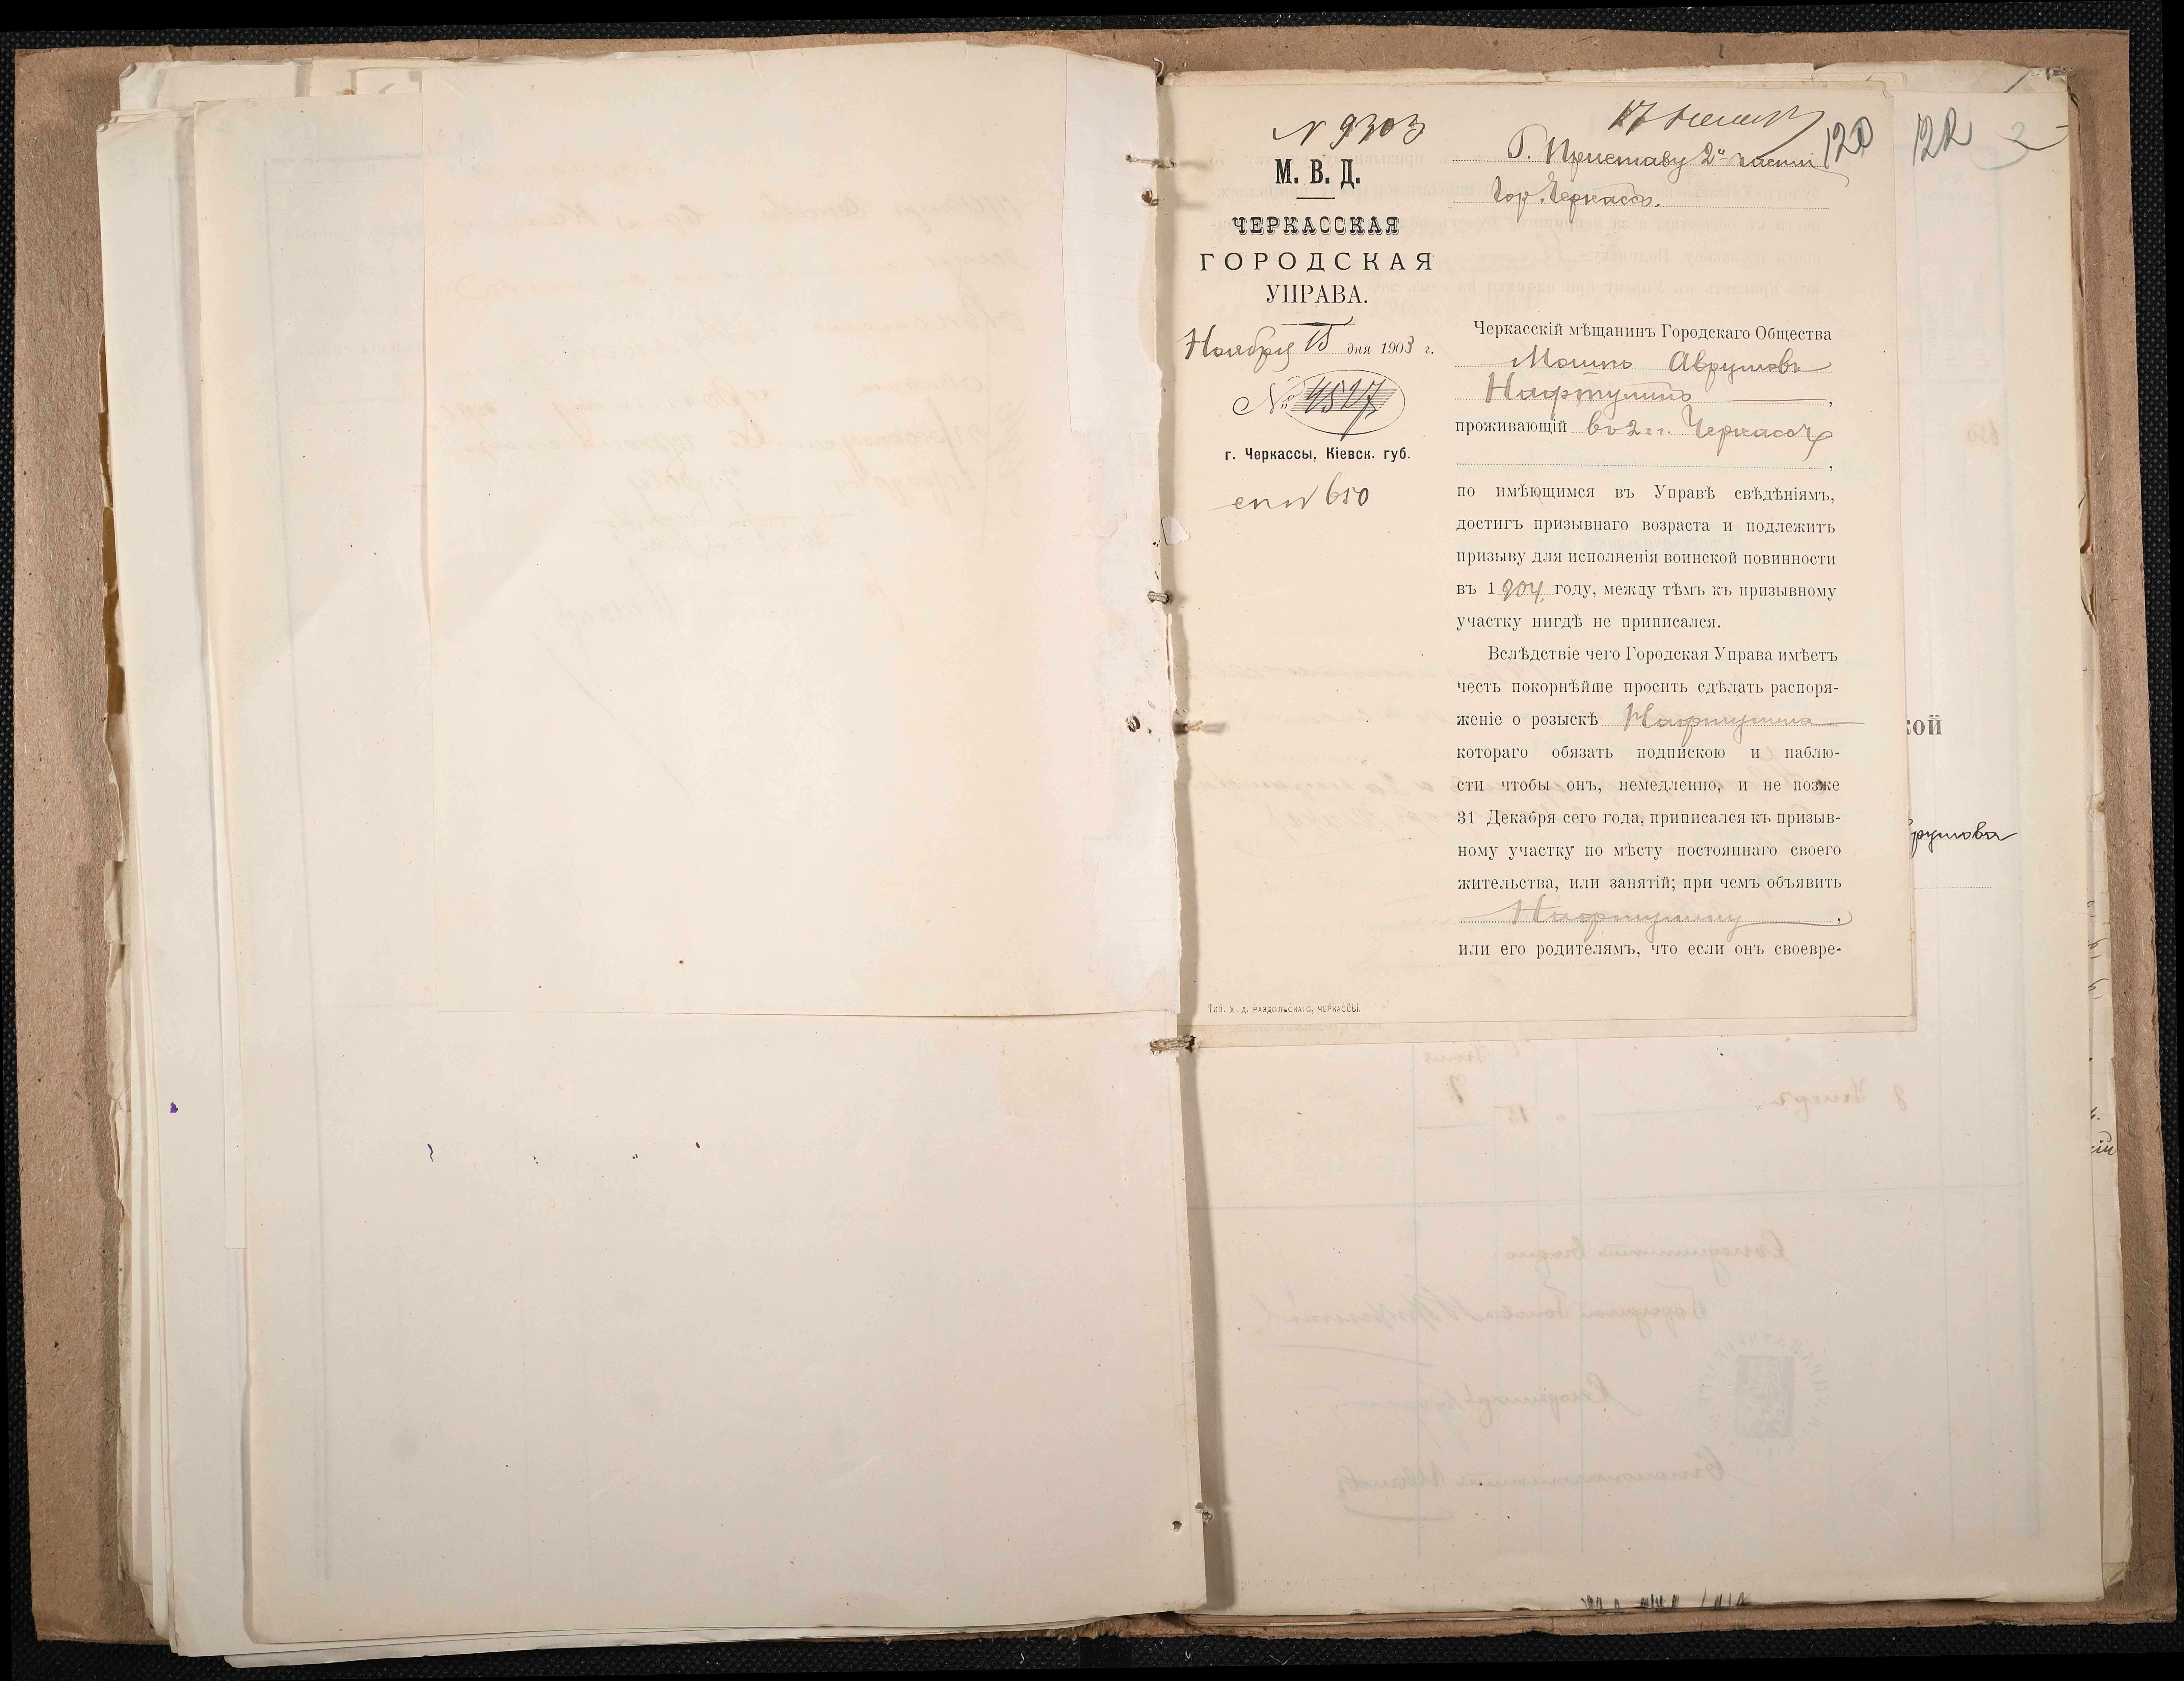 N 9303
М. В. Д.
ЧЕРКАССКАЯ
ГОРОДСКАЯ
УПРАВА.
Ноября 15 дня 1903 г.
№ 4527
г. Черкассы, Кіевск. губ.
650
17
120
122
Г. Приставу 2й части
Гор. Черкассъ.
Черкасскій мѣщанинъ Городскаго Общества
Мошко Аврумовъ
Нафтулинъ ,
проживающій въ г. Черкассахъ
,
по имѣющимся въ Управѣ свѣдѣніямъ,
достигъ призывнаго возраста и подлежитъ
призыву для исполненія воинской повинности
въ 1904 году, между тѣмъ къ призывному
участку нигдѣ не приписался.
Вслѣдствіе чего Городская Управа имѣетъ
честь покорнѣйше просить сдѣлать распоря-
женіе о розыскѣ Нафтулина
котораго обязать подпискою и наблю-
сти чтобы онъ, немедленно, и не позже
31 Декабря сего года, приписался къ призыв-
ному участку по мѣсту постояннаго своего
жительства, или занятій; при чемъ объявить
Нафтулину .
или его родителямъ, что если онъ своевре-
Тип. Х. Д. РАЗДОЛЬСКАГО, ЧЕРКАССЫ.
кой
врумова